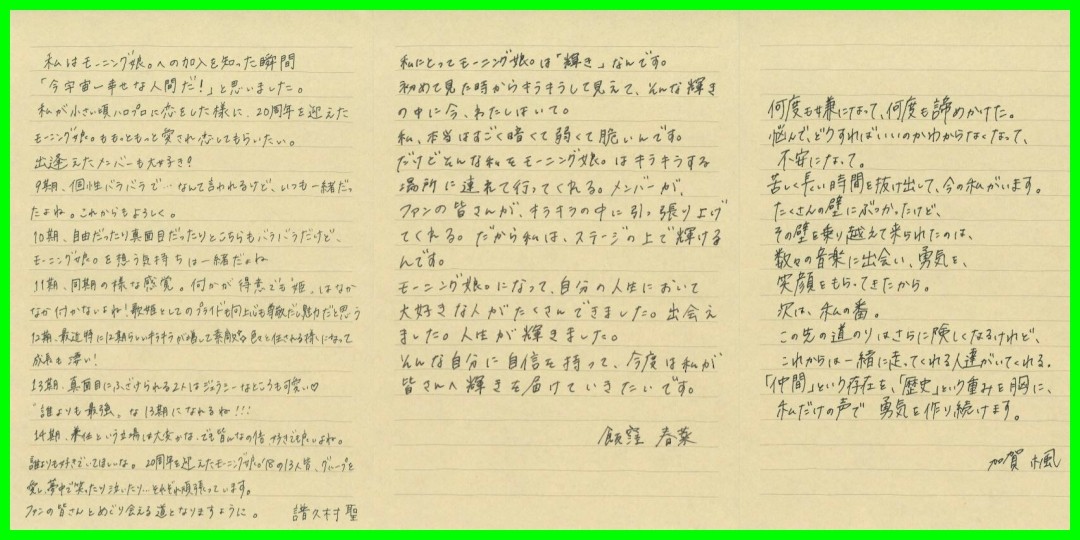 私はモーニング娘。への加入を知った瞬間
「今宇宙一幸せな人間だ!」と思いました。
私が小さい頃ハロプロに恋をした様に、20周年を迎えた
モーニング娘。ももっともっと愛され恋してもらいたい。
出逢えたメンバーも大好き!
9期、個性バラバラで…なんて言われるけど、いつも一緒だっ
たよね。これからもよろしく。
10期、自由だったり真面目だったりとこちらもバラバラだけど、
モーニング娘。を想う気持ちは一緒だよね
11期、同期の様な感覚。何かが得意でも"姫"はなか
なか付かないよね!歌姫としてのプライドも向上心も尊敬だし魅力だと思う
12期、最近特に12期らしいキラキラが増して素敵 色々と任される様になって
成長も凄い!
13期、真面目にふざけられる2人はジェラシーなところも可愛い♡
"誰よりも最強"な13期になれるね!!!
14期、兼任という立場は大変かな、でも皆んなの倍 好きでも良いよね。
誰よりも好きでいてほしいな。20周年を迎えたモーニング娘。の13人皆、グループを
愛し、夢中で笑ったり泣いたり…それぞれ頑張っています。
ファンの皆さんとめぐり会える道となりますように。 譜久村聖
私にとってモーニング娘。は「輝き」なんです。
初めて見た時からキラキラして見えて、そんな輝き
の中に今、わたしはいて。
私、本当はすごく暗くて弱くて脆いんです。
だけどそんな私をモーニング娘。はキラキラする
場所に連れて行ってくれる。メンバーが、
ファンの皆さんが、キラキラの中に引っ張り上げ
てくれる。だから私は、ステージの上で輝ける
んです。
モーニング娘。になって、自分の人生において
大好きな人がたくさんできました。出会え
ました。人生が輝きました。
そんな自分に自信を持って、今度は私が
皆さんへ輝きを届けていきたいです。
飯窪 春菜
何度も嫌になって、何度も諦めかけた。
悩んで、どうすればいいのかわからなくなって、
不安になって。
苦しく長い時間を抜け出して、今の私がいます。
たくさんの壁にぶつかったけど、
その壁を乗り越えて来られたのは、
数々の音楽に出会い、勇気を、
笑顔をもらってきたから。
次は、私の番。
この先の道のりはさらに険しくなるけれど、
これからは一緒に走ってくれる人達がいてくれる。
「仲間」という存在を、「歴史」という重みを胸に、
私だけの声で 勇気を作り続けます。
加賀 楓